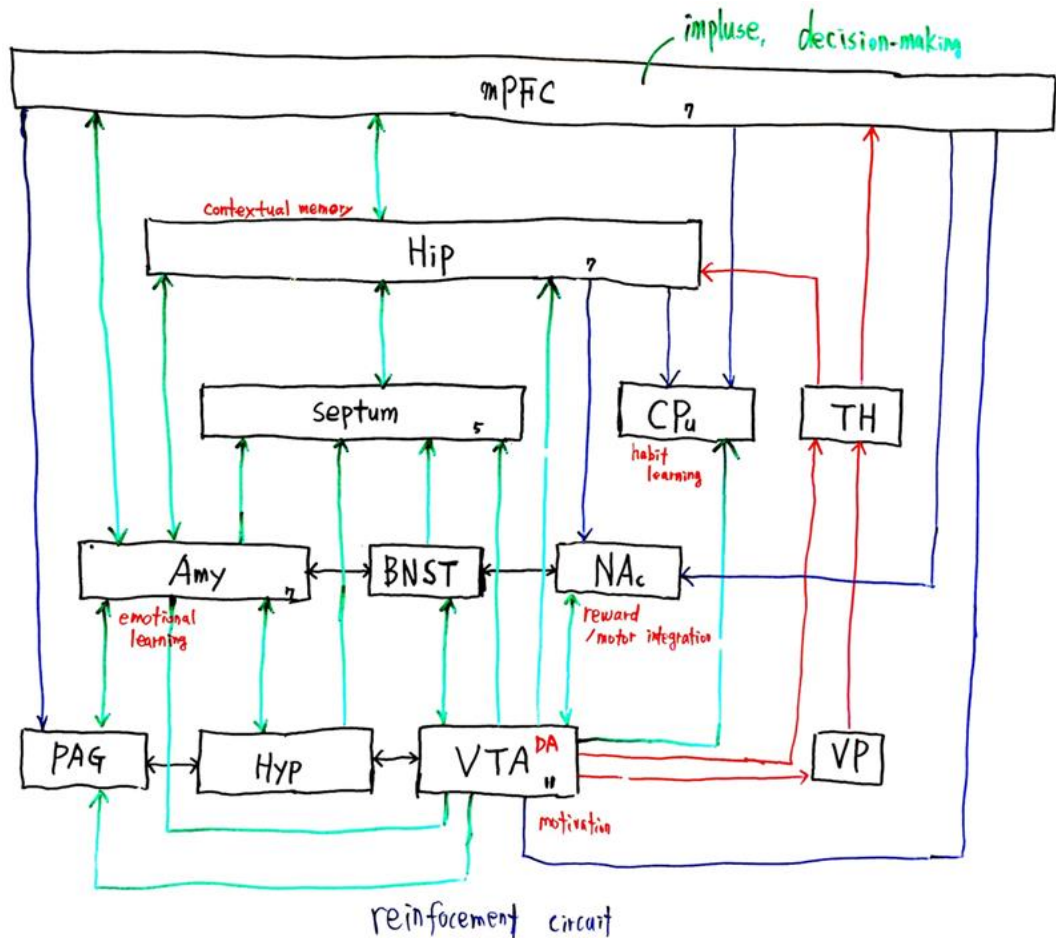 impluse, decision-making
mPFC 7
contextual memory
Hip 7
Septum 5
CPu
TH
habit
learning
Amy 7
BNST
NAc
emotional
learning
reward
/motor integration
PAG
Hyp
VTA DA 11
VP
motivation
reinfocement circuit